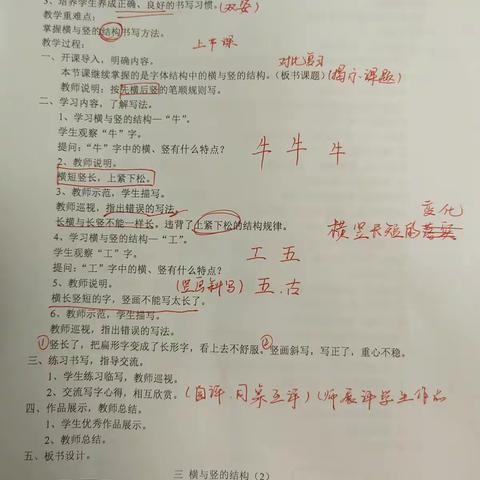 3、培养学生养成正确、良好的书写习惯。(双姿)
教学重难点：
掌握横与竖的结构书写方法。
教学过程： 上节课
一、开课导入，明确内容。 对比复习
本节课继续掌握的是字体结构中的横与竖的结构。（板书课题）(揭示课题)
教师说明：按先横后竖的笔顺规则写。
二、学习内容，了解写法。
1、学习横与竖的结构—“牛”。
学生观察“牛”字。
提问：“牛”字中的横、竖有什么特点？ 牛 牛 牛
2、教师说明。
横短竖长，上紧下松。
3、教师示范，学生描写。
教师巡视，指出错误的写法。 变化
长横与长竖不能一样长，违背了上紧下松的结构规律。 横竖长短的
4、学习横与竖的结构—“工”。
学生观察“工”字。 工 五
提问：“工”字中的横、竖有什么特点？
5、教师说明。 (竖写斜写) 五.古
横长竖短的字，竖画不能写太长了。
6、教师示范，学生描写。
教师巡视，指出错误的写法。
①竖长了，把扁形字变成了长形字，看上去不舒服。②竖画斜写，写正了，重心不稳。
三、练习书写，指导交流。
1、学生练习临写，教师巡视。
2、交流写字心得，相互欣赏。(自评.同桌互评)(师展评学生作品
四、作品展示，教师总结。
1、学生优秀作品展示。
2、教师总结。
五、板书设计。
三 横与竖的结构（2）